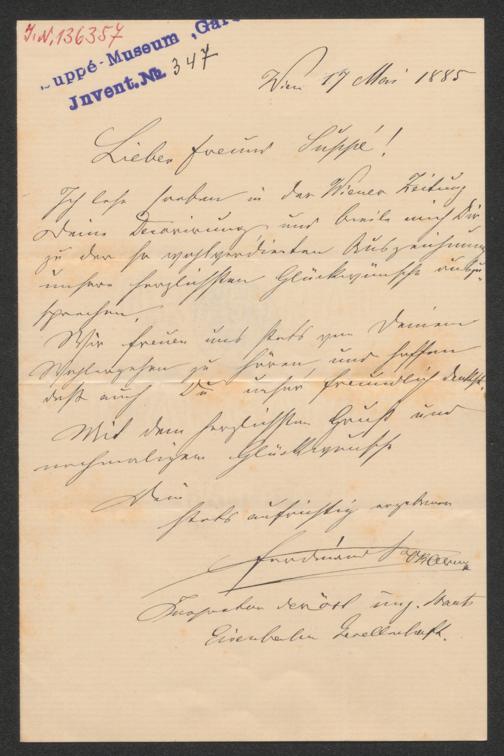 I.N. 136357
Suppé-Museum „Gars
Invent. № 347
Wien 17 Mai 1885
Lieber Freund Suppé!
Ich lese soeben in der Wiener Zeitung
Deine Decorirung, und beeile mich Dir
zu der so wohlverdienten Auszeichnung
unsere herzlichsten Glückwünsche auszu-
sprechen.
Wir freuen uns stets von Deinem
Wohlergehen zu hören, und hoffen
daß auch Du unser freundlich denkst.
Mit dem herzlichsten Gruß und
nochmaligem Glückwunsche
Dein
stets aufrichtig ergebener
Ferdinand
Inspector der öst ung. Staats
Eisenbahn Gesellschaft.